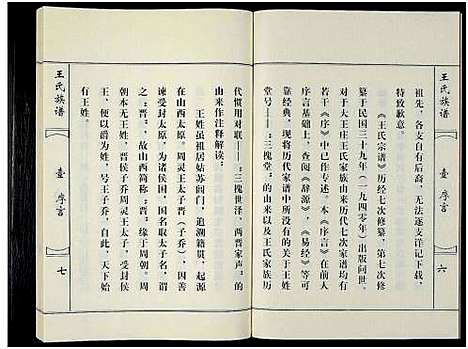 祖先，各支自有后裔，无法逐支详记下载，
特致歉意。
《王氏宗谱》历经七次修纂，第七次修
纂于民国三十九年（一九四零年）出版问世。
对于大王庄王氏家族由来历代七次家谱均有
若干《序》中已作专述。本《序言》在前人
序言基础上，查阅《辞源》、《易经》等可
靠经典，现将历代家谱中所没有的关于王姓
堂号──：三槐堂。的由来以及王氏家族历
六
王氏族谱
壹 序言
代惯用对联──：三槐世泽，两晋家声：的
由来作注释解读：
王姓虽祖居姑苏阊门，追溯籍贯，起源
在山西太原。周灵王太子晋（子乔），因善
谏受封为太原侯，国名取太子名，谓
之：晋：，故山西简称：晋。缘于周朝。周
朝本无王姓，晋侯子乔周灵王太子，受封侯
王，便以爵为姓，号王子乔，自此，天下始
有王姓。
王氏族谱
壹 序言
七